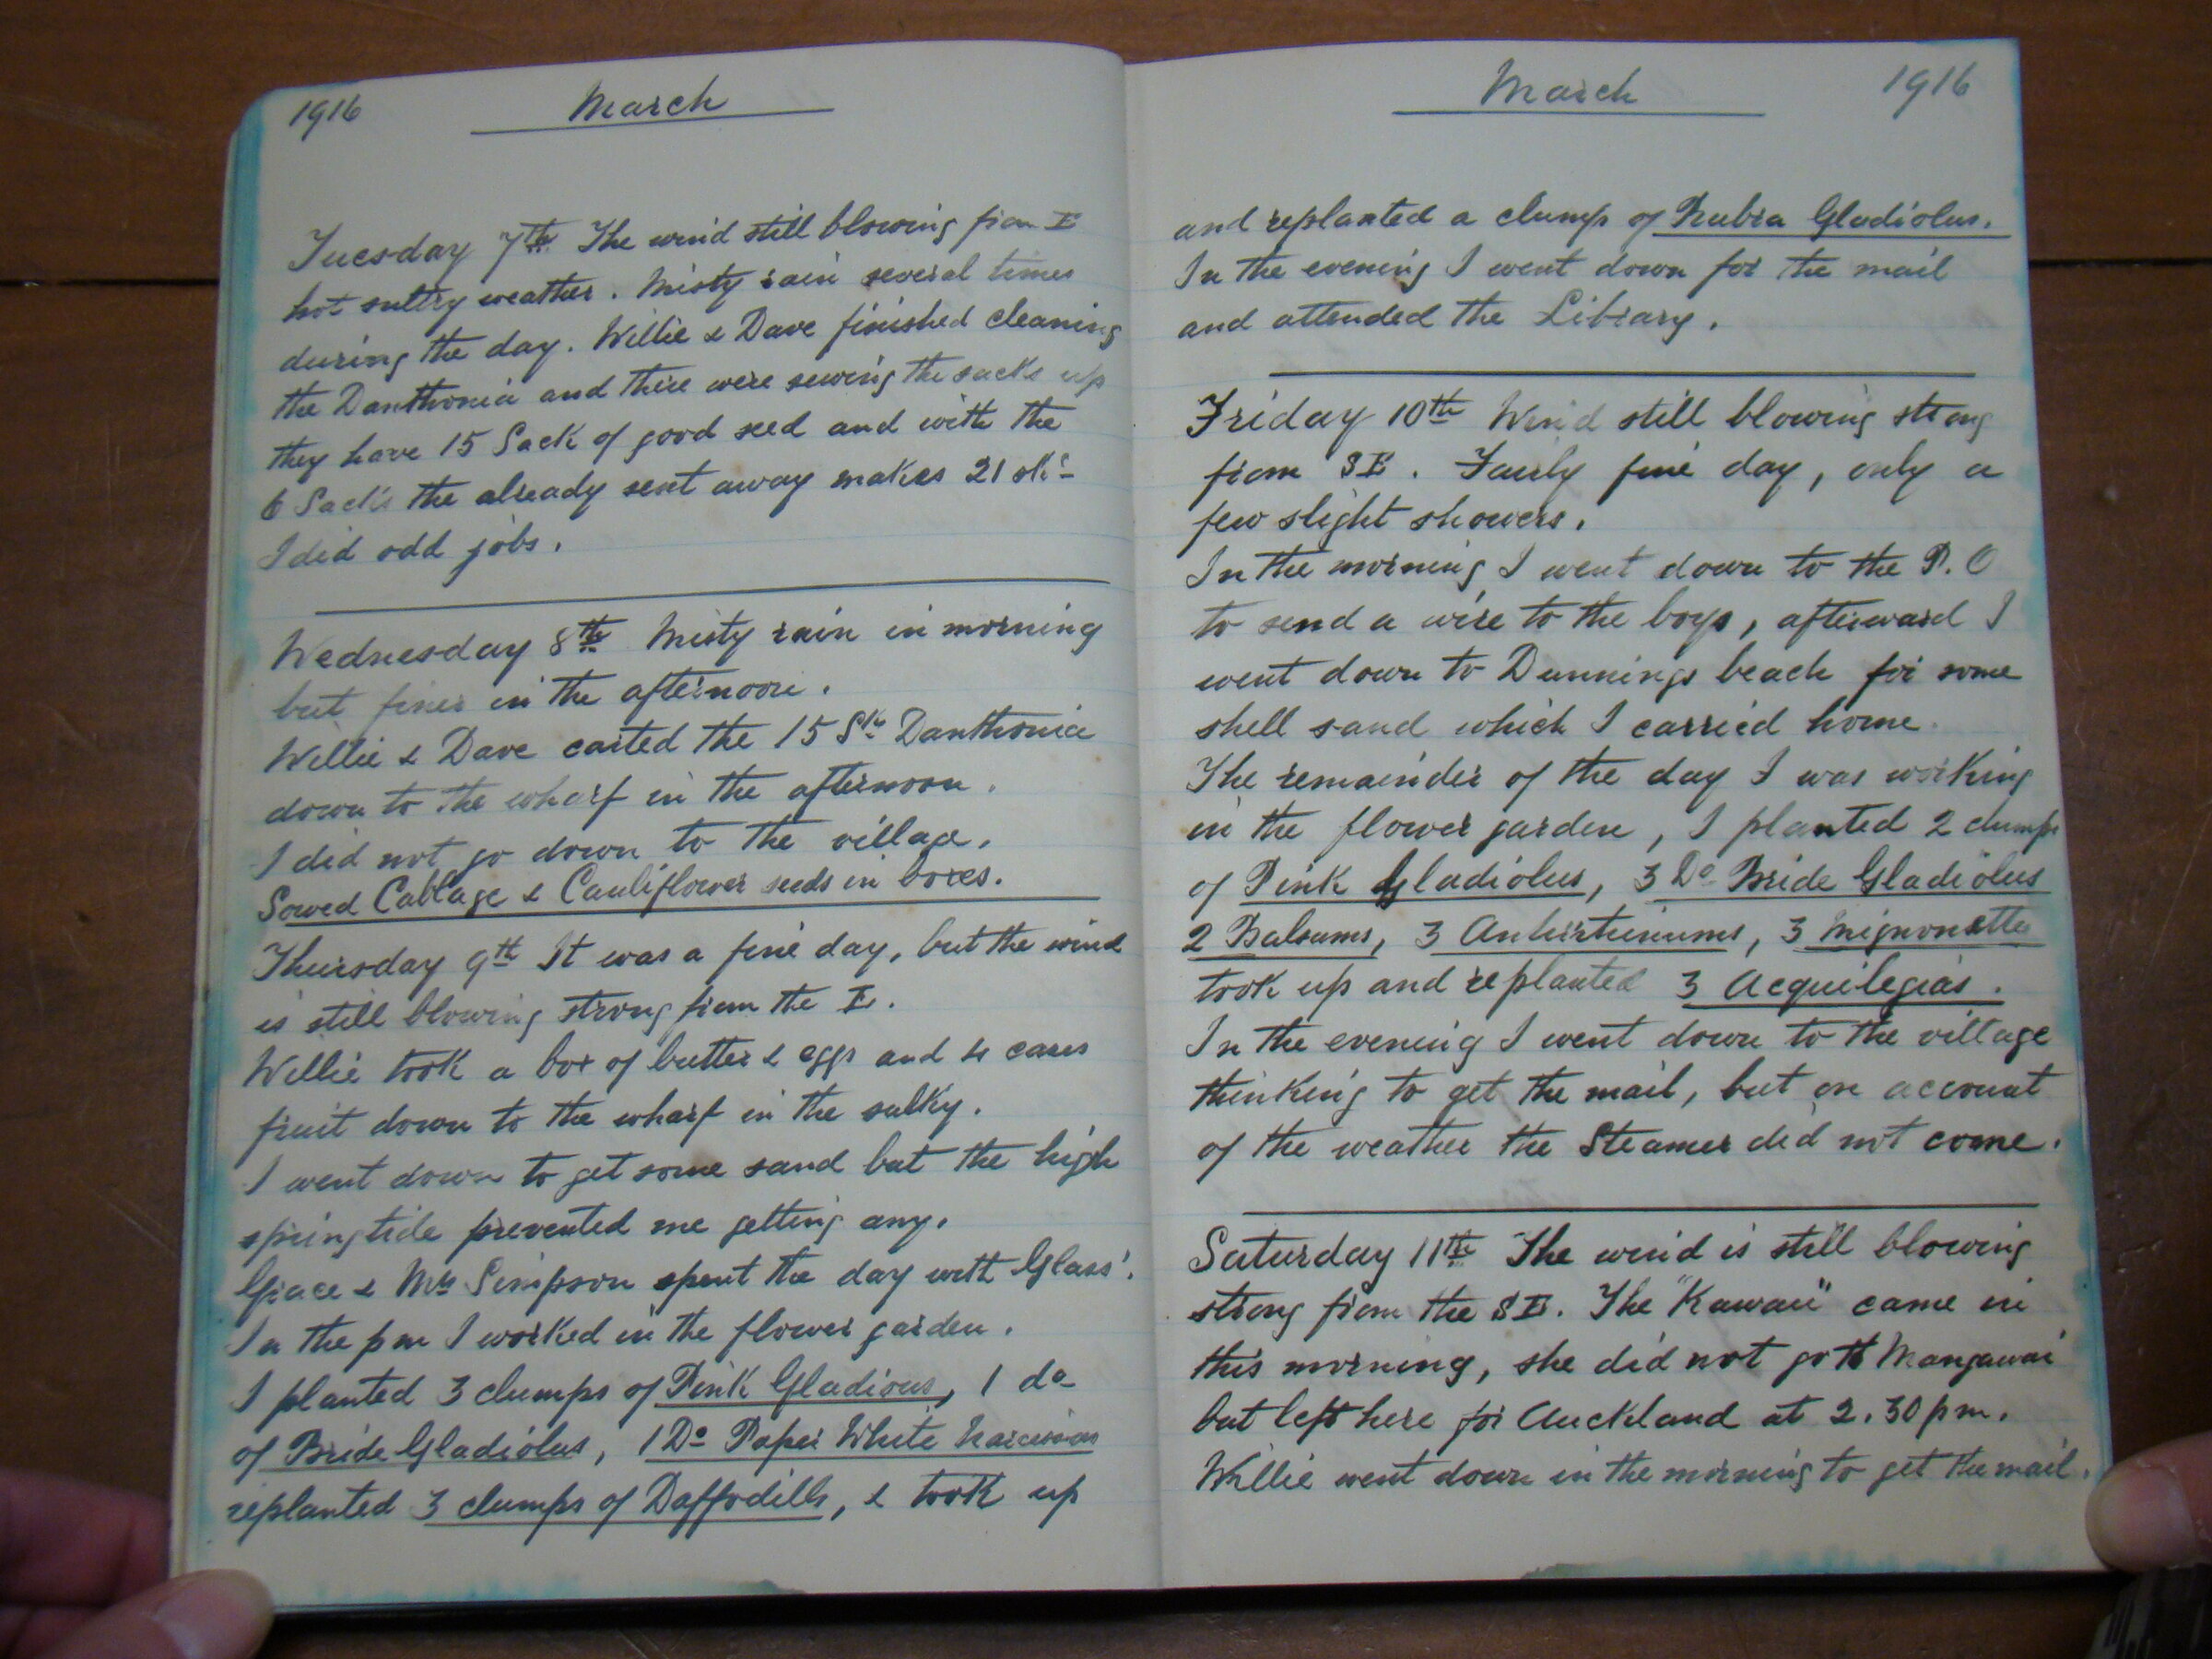 1916 March
Tuesday 7th The wind still blowing from E
hot sultry weather. Misty rain several times
during the day. Willie & Dave finished cleaning
the Danthonia and there were sewing the sacks up
they have 15 Sack of good seed and with the
6 Sacks the already sent away makes 21 sks
I did odd jobs.
Wednesday 8th Misty rain in morning
but finer in the afternoon.
Willie & Dave carted the 15 Sks Danthonia
down to the wharf in the afternoon.
I did not go down to the village.
Sowed Cabbage & Cauliflower seeds in boxes.
Thursday 9th It was a fine day, but the wind
is still blowing strong from the E.
Willie took a box of butter & eggs and 4 cases
fruit down to the wharf in the sulky.
I went down to get some sand but the high
springtide prevented me getting any.
Grace & Mrs Simpson spent the day with Glass'.
In the pm I worked in the flower garden.
I planted 3 clumps of Pink Gladious, 1 do
of Bride Gladiolus, 1 Do Paper White Narcissus
replanted 3 clumps of Daffodills, & took up
March 1916
and replanted a clump of Rubra Gladiolus.
In the evening I went down for the mail
and attended the Library.
Friday 10th Wind still blowing strong
from SE. Fairly fine day, only a
few slight showers.
In the morning I went down to the P.O
to send a wire to the boys, afterward I
went down to Dunnings beach for some
shell sand which I carried home.
The remainder of the day I was working
in the flower garden, I planted 2 clumps
of Pink Gladiolus, 3 Do Bride Gladiolus
2 Balsams, 3 Antirrhinums, 3 Mignonette
took up and replanted 3 Acquilegias.
In the evening I went down to the village
thinking to get the mail, but on account
of the weather the Steamer did not come.
Saturday 11th The wind is still blowing
strong from the SE. The "Kawau" came in
this morning, she did not go to Mangawai
but left here for Auckland at 2.30 pm.
Willie went down in the morning to get the mail.